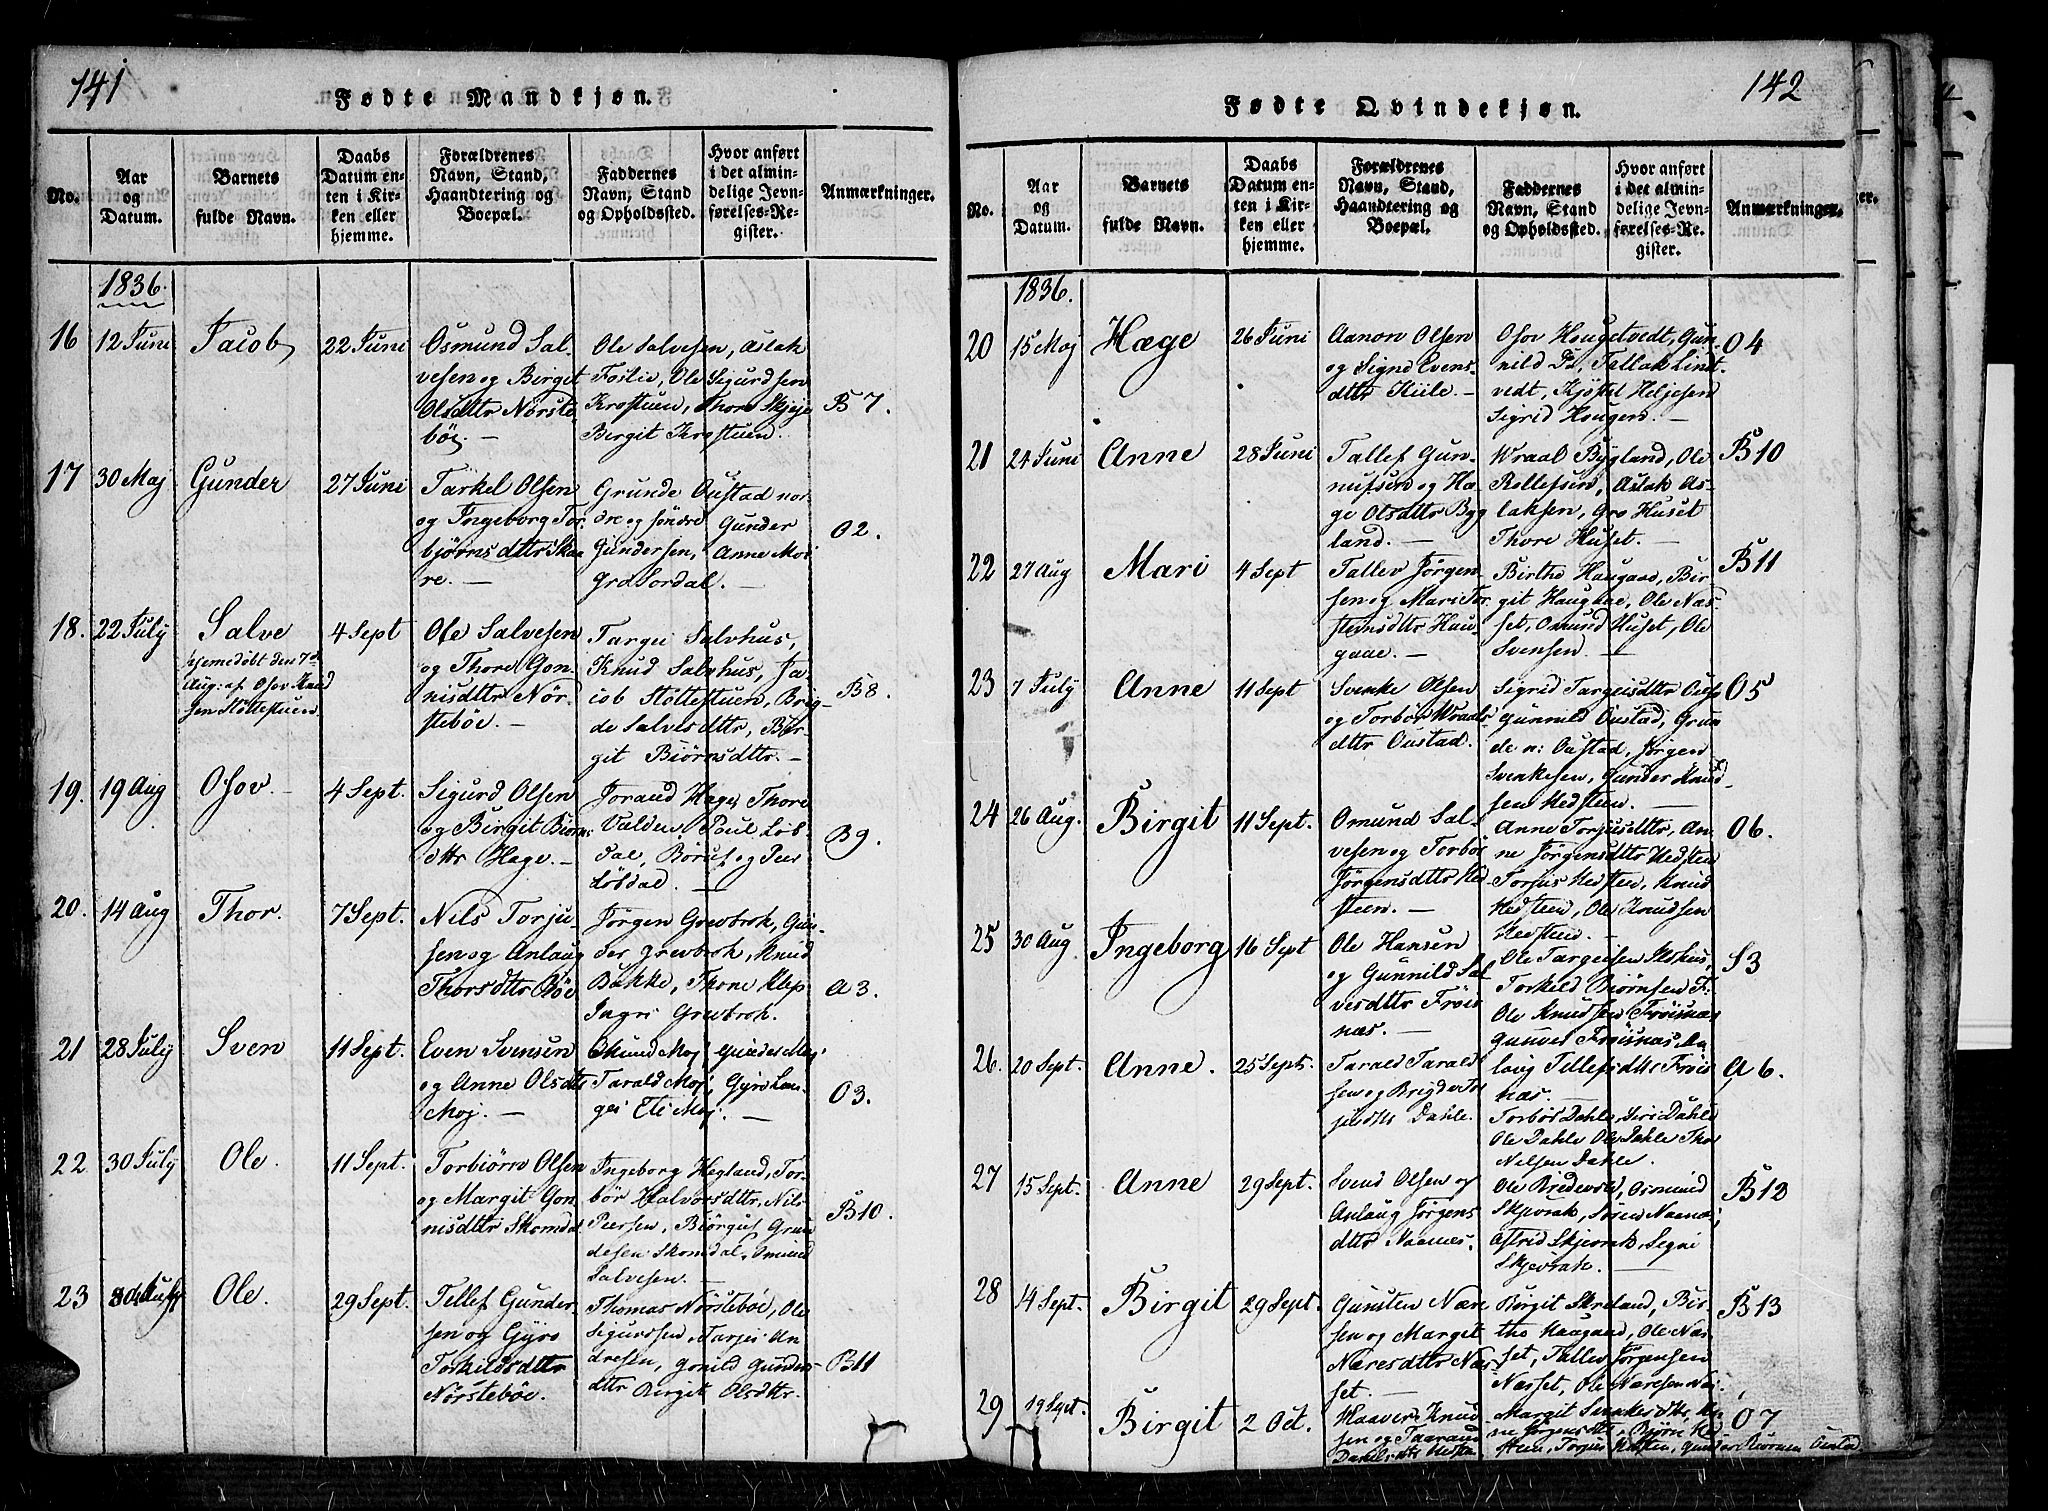 141
Fødte Mandkjøn.
No.
Aar
og
Datum.
Barnets
fulde Navn.
Daabs
Datum en-
ten i Kir-
ken eller
hjemme.
Forældrenes
Navn, Stand,
Haandtering og
Boepæl.
Faddernes
Navn, Stand
og Opholdssted.
Hvor anført
i det almin-
delige Jevn-
førelses-Re-
gister.
Anmærkninger.
1836.
16
12 Juni
Jacob
22 Juni
Osmund Sal-
vesen og Birgit
Olsdttr Nörste
böe. —
Ole Salvesen, Aslak
Ole Sigurdsen
Krostuen, Thore Skjeje
Birgit Krostuen.
B 7.
17
30 Maj
Gunder
27 Juni
Tarkel Olsen
og Ingeborg Tor
bjørnsdttr Skaa
re. —
Grunde Oustad nor
dre og søndre Gunder
Gundersen, Anne Moi
Gro Sordal. —
O2.
18.
22 July
Salve
hjemedöbt den 7d
Aug: af Osov Knud
sen Stöttestuen
4 Sept
Ole Salvesen
og Thore Gon
nisdttr Nör-
steböe. —
Targei Salvhus,
Knud Salvhus, Ja-
cob Stöttestuen, Brig-
de Salvesdttr, Bir
git Biörnsdttr. —
B8.
19.
19 Aug
Osov. —
4 Sept.
Sigurd Olsen
og Birgit Biörns
dttr Hage. —
Joraud Hage, Thore
Valden, Poul Löb-
dal, Böruf og Peer
Löbdal. —
B9.
20.
14 Aug
Thor.
7 Sept.
Nils Torju
sen og Anlaug
Thorsdttr Böe
Jörgen Grevbrok, Gun-
der Grevbrok, Knud
Bakke, Thone Klep
Ingri Grevbrok.
A3.
21
28 July
Sven
11 Sept.
Even Svensen
og Anne Olsdttr
Moj. —
Omund Moj, Gunder Moj
Tarald Moj, Gyro Lan-
gei Eli Moj. —
O3.
22
30 July
Ole.
11 Sept.
Torbiörn Olsen
og Margit Gon
nisdttr Skomdal
Ingeborg Hegland, Tor-
bör Halvorsdttr, Nils
Peersen, Biörguf Grun
desen Skomdal, Omund
Salvesen. —
B10.
23
Ole.
29 Sept.
Tellef Gunder
sen og Gyro
Torkildsdttr
Nörsteböe.
Thomas Nörsteböe, Ole
Sigurdsen, Tarjei An
dresen, Gonild Gunders-
dttr Birgit Olsdttr.
B11
142
Fødte Qvindekjøn.
No.
Aar
og
Datum.
Barnets
fulde Navn.
Daabs
Datum en-
ten i Kir-
ken eller
hjemme.
Forældrenes
Navn, Stand,
Haandtering og
Boepæl.
Faddernes
Navn, Stand
og Opholdssted.
Hvor anført
i det almin-
delige Jevn-
førelses-Re-
gister.
Anmærkninger.
1836.
20
15 Maj
Hæge
26 Juni
Aanon Olsen
og Signe Evens-
dttr Kiile. —
Osov Hougetvedt, Gun-
nild Tallak Lindt-
vedt, Kjöstel Heljesen
Sigrid Hougen. —
O4
21
24 Juni
Anne
28 Juni
Tallef Gun-
nufsen og Hæ
ge Olsdttr Byg
land. —
Wraal Bygland, Ole
Rollefsen, Aslak As-
laksen, Gro Huset
Thore Huset. —
B10
22
27 Aug
Mari
4 Sept
Tallev Jörgen-
sen og Mari Tor
stensdttr Hau-
gaae. —
Birthe Haugaae, Bir-
git Haugaae, Ole Næs-
set, Omund Huset, Ole
Svensen. —
B11
23
7 July
Anne
11 Sept
Svenke Olsen
og Torbör Wraals
dttr Oustad.
Sigrid Targeisdttr
Gunnild Oustad, Grun
de n: Oustad, Jörgen
Svenkesen, Gunder Knud-
sen Hedsteen. —
O5
24
26 Aug.
Birgit
11 Sept.
Omund Sal-
vesen og Torbör
Jörgensdttr Hed
steen. —
Anne Torjusdttr, An
ne Jörgensdttr Hedsteen
Torjus Hedsteen, Knud
Hedsteen, Ole Knudsen
Hedsteen. —
O6.
25
30 Aug
Ingeborg
16 Sept
Ole Hansen
og Gunnild Sal
vesdttr Fröis
næs. —
Ole Targeisen
Torkild Biörnsen F:
Ole Knudsen Fröisnæs
Gunver Fröisnæs An
laug Tellefsdttr Fröis
næs.
S3
26.
20 Sept.
Anne.
25 Sept.
Tarald Tarald
sen og Brigde
Dahle.
Torbör Dahle, Siri Dahle
Ole Dahle Ole Dahle Thor
Nilsen Dahle.
A6.
27
15 Sept.
Anne
29 Sept.
Svend Olsen og
Anlaug Jörgens
dttr Næsnes.
Osmund
Skjevrak, Sören
Astrid Skjevrak, Segni
Skjevrak. —
B12
28
14 Sept.
Birgit
29 Sept.
Gunsten Nære
sen og Margit
Næresdttr Næs
set. —
Birgit Skreland, Bir-
the Haagaae, Ole Næs-
set, Tallev Jörgensen
Næsset, Ole Næresen Næs-
B13
29
19 Sept.
Birgit
2 Oct.
Haaver Knud
sen og Taaraun
Danielsdttr Hedsteen
Margit Svenkesdttr, An
ne Jörgensdttr, Björn Hed
steen, Torjus Hedsteen, Gunder
O7